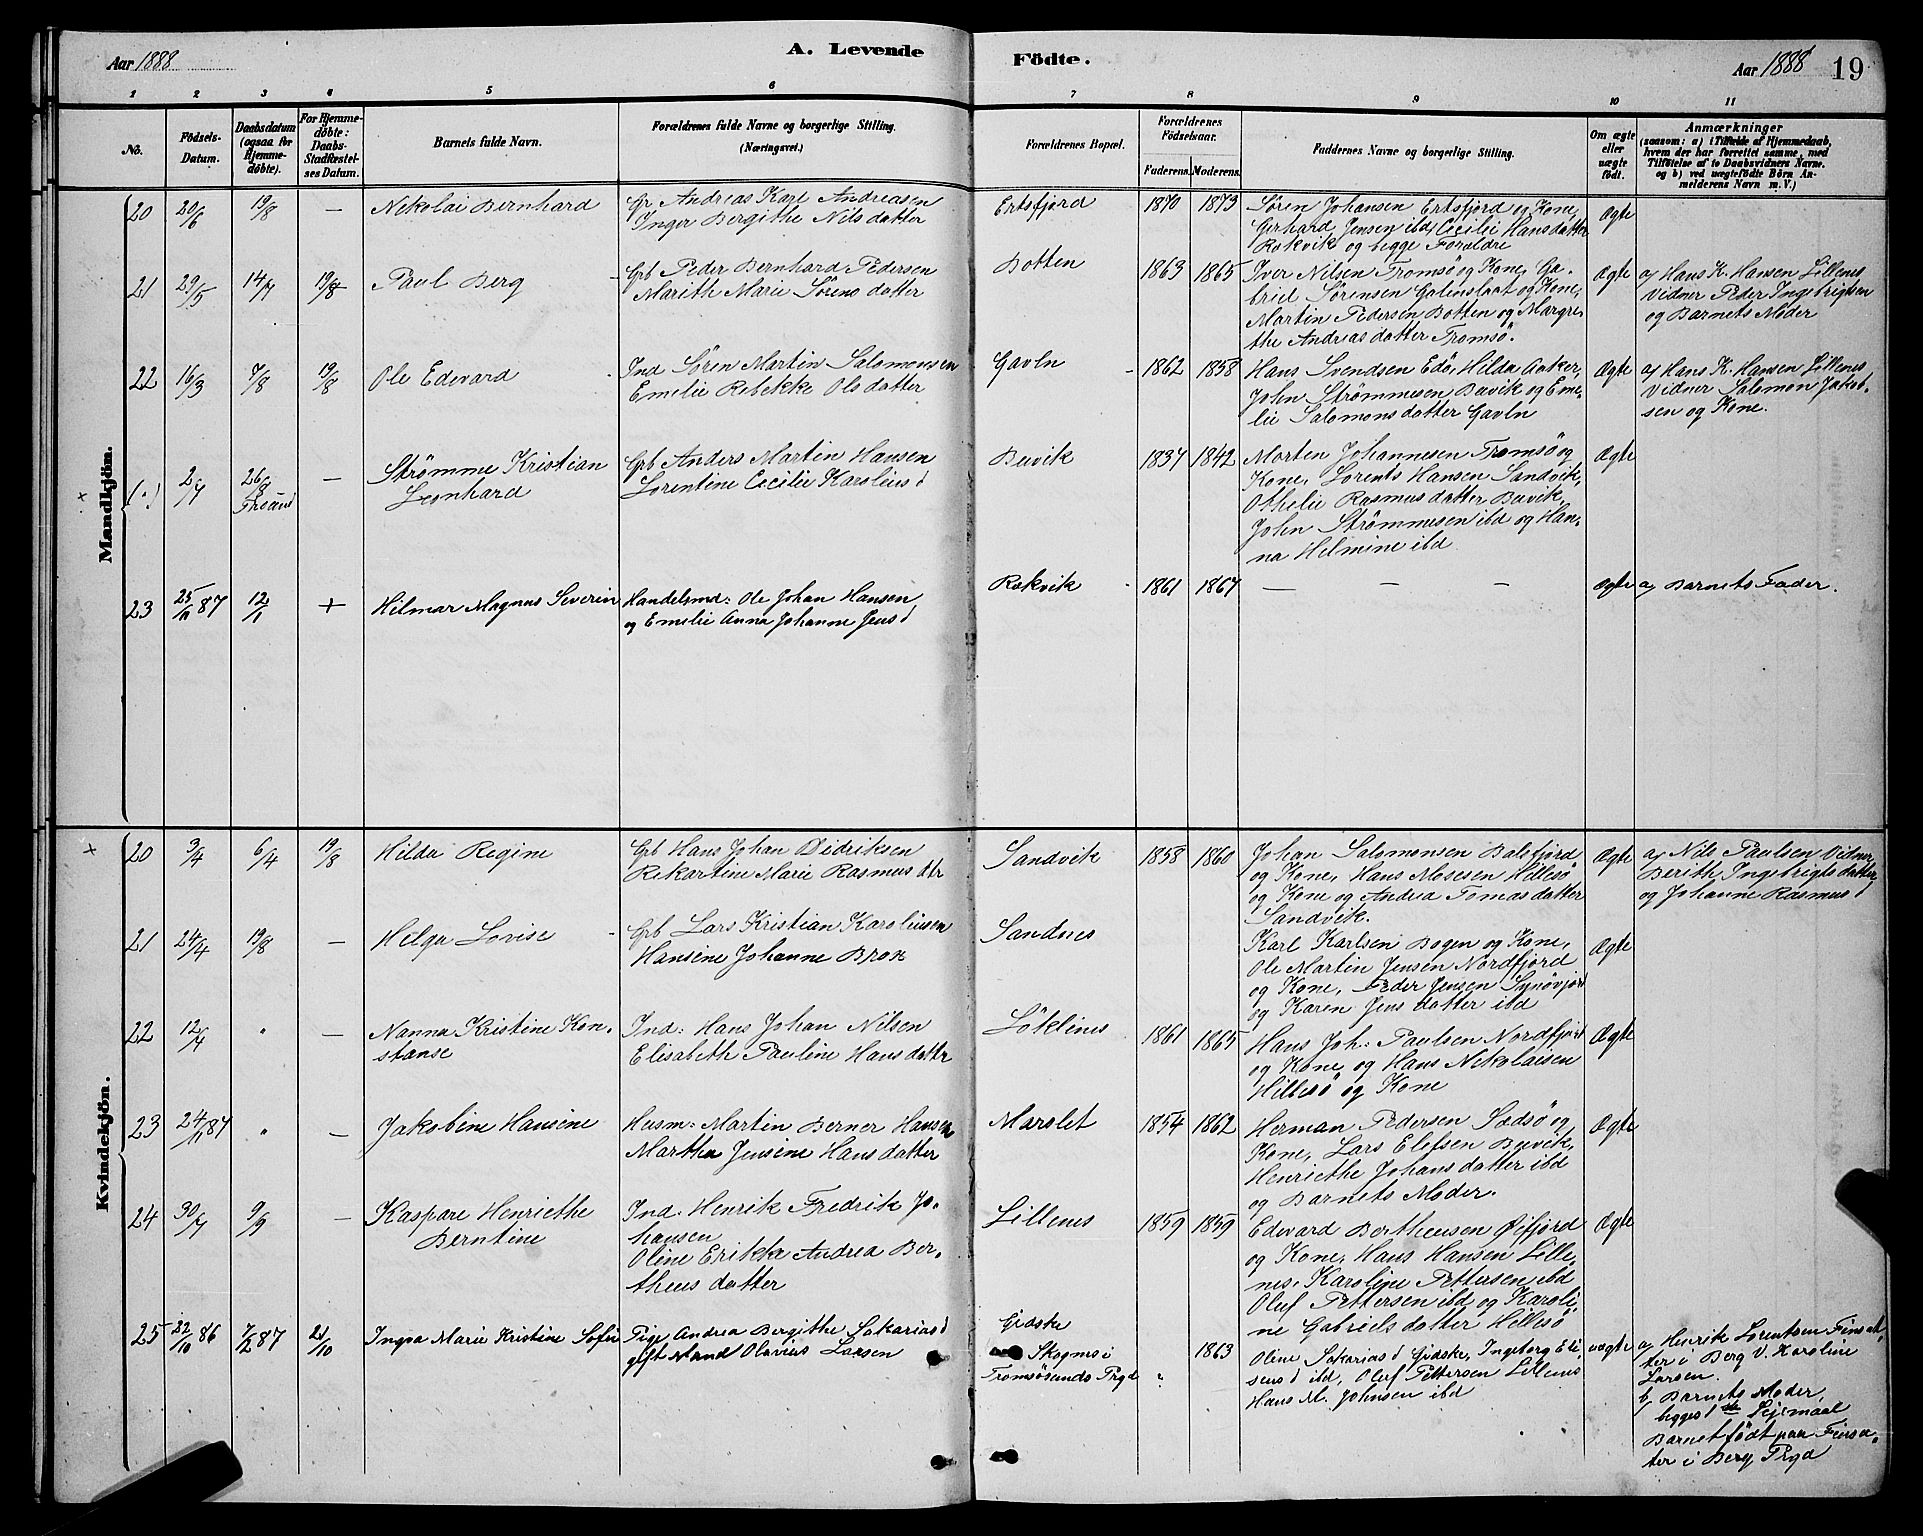 Aar 1888
A. Levende
Födte.
Aar 1888
19
1 2 3 4 5 6 7 8 9 10 11
No.
Födsels-Datum.
Daabsdatum (ogsaa for Hjemme-døbte).
For Hjemme-døbte: Daabs-Stadfæstel-ses Datum.
Barnets fulde Navn.
Forældrenes fulde Navne og borgerlige Stilling.
(Næringsvei.)
Forældrenes Bopæl.
Forældrenes Födselsaar.
Faderens. Moderens.
Faddernes Navne og borgerlige Stilling.
Om ægte eller uægte födt.
Anmærkninger
(saasom: a) i Tilfælde af Hjemmedaab,
hvem der har forrettet samme, med
Tilföielse af to Daabsvidners Navne,
og b) ved uægtefödte Börn An-
melderens Navn m. V.)
Mandkjön.
20 20/6 19/8 — Nikolai Bernhard
Gr Andreas Karl Andreasen
Inger Bergithe Nils datter
Ertsfjord 1870 1873
Søren Johansen Ertsfjord og Kone,
Gerhard Jensen ibd, Cecilie Hansdatter
Rækvik og begge Forældre
Ægte
21 29/5 14/7 19/8 Paul Berg
Grb Peder Bernhard Pedersen
Marith Marie Sørens datter
Botten 1863 1865
Iver Nilsen Tromsø og Kone, Ga-
briel Sørensen Galnslaat og Kone,
Martin Pedersen Botten og Margre-
the Andreas datter Tromsö.
Ægte
a/ Hans K. Hansen Lillenes
Vidner Peder Ingebrigtsen
og Barnets Moder
22 16/3 7/8 19/8 Ole Edevard
Ind Søren Martin Salomonsen
Emelie Rebekke Ols datter
Gavln 1862 1858
Hans Svendsen Edø, Hilda Aaker,
John Strømmesen Buvik og Eme-
lie Salomons datter Gavln
Ægte
a/ Hans K. Hansen Lillenes
Vidner Salomon Jakob-
sen og Kone.
× (.) 2/7 26/8 —
Strømme Kristian
Leonhard
Grb Anders Martin Hansen
Lorentine Cecilie Karolius d
Buvik 1837 1842
Morten Johannesen Tromsö og
Kone, Lorents Hansen Sandvik,
Othelie Rasmus datter Buvik,
John Strømmesen ibd og Han-
na Hilmine ibd
Ægte
23 87 12/1 + Hilmar Magnus Severin
Handelsmd: Ole Johan Hansen
og Emelie Anna Johanne Jens d
Rækvik 1861 1867 — — —
Ægte
a/ Barnets Fader.
Kvindekjön.
× 20 3/4 6/4 19/8 Hilda Regine
Grb Hans Johan Didriksen
Rikartine Marie Rasmus dtr
Sandvik 1858 1860
Johan Salomonsen Balsfjord
og Kone, Hans Mosesen Hillesø
og Kone og Andrea Tomas datter
Sandvik.
Ægte
a/ Nils Paulsen Vidner
Berith Ingebrigts datter
og Johanne Rasmus d
21 24/4 19/8 — Helga Lovise
Grb Lars Kristian Karoliusen
Hansine Johanne Brox
Sandnes
Karl Karlsen Bogen og Kone,
Ole Martin Jensen Nordfjord
og Kone, Peder Jensen Synøvjord
og Karen Jens datter ibd
Ægte
22 12/4 " —
Nanna Kristine Kon-
stanse
Ind: Hans Johan Nilsen
Elisabeth Pauline Hans datter
Løklines 1861 1865
Hans Joh. Paulsen Nordfjord
og Kone, og Hans Nikolaisen
Hillesö og Kone
Ægte
23 24/11 87 " — Jakobine Hansine
Husm: Martin Berner Hansen
Martha Jensine Hans datter
Marslet 1854 1862
Herman Pedersen Sødsø og
Kone, Lars Elefsen Buvik,
Henriethe Johans datter ibd
og Barnets Moder.
Ægte
24 30/7 9/9 —
Kaspare Henriethe
Berntine
Ind: Henrik Fredrik Jo-
hansen
Oline Erikka Andrea Ber-
theus datter
Lillenes 1859 1859
Edevard Bertheusen Øifjord
og Kone, Hans Hansen Lille-
nes, Karoline Pettersen ibd
Oluf Pettersen ibd og Karoli-
ne Gabriels datter Hillesö
Ægte
25 22/10 86 7/2 87 21/10 Ingva Marie Kristine Sofie
Pige Andrea Bergithe Sakarias d
gift Mand Olavius Larsen
Gidske
Skogms i
Tromsøsunds Prgd
" 1863
Oline Sakarias d Gidske, Ingeborg Eli-
sens d ibd, Oluf Pettersen Lillenes
Hans M. Johnsen ibd
uægte
a/ Henrik Lorentsen Finsæ-
ter i Berg V. Karoline
Larsen.
b/ Barnets Moder,
begges 1ste Leiermaal
Barnet födt paa Finsæ-
ter i Berg Prgd